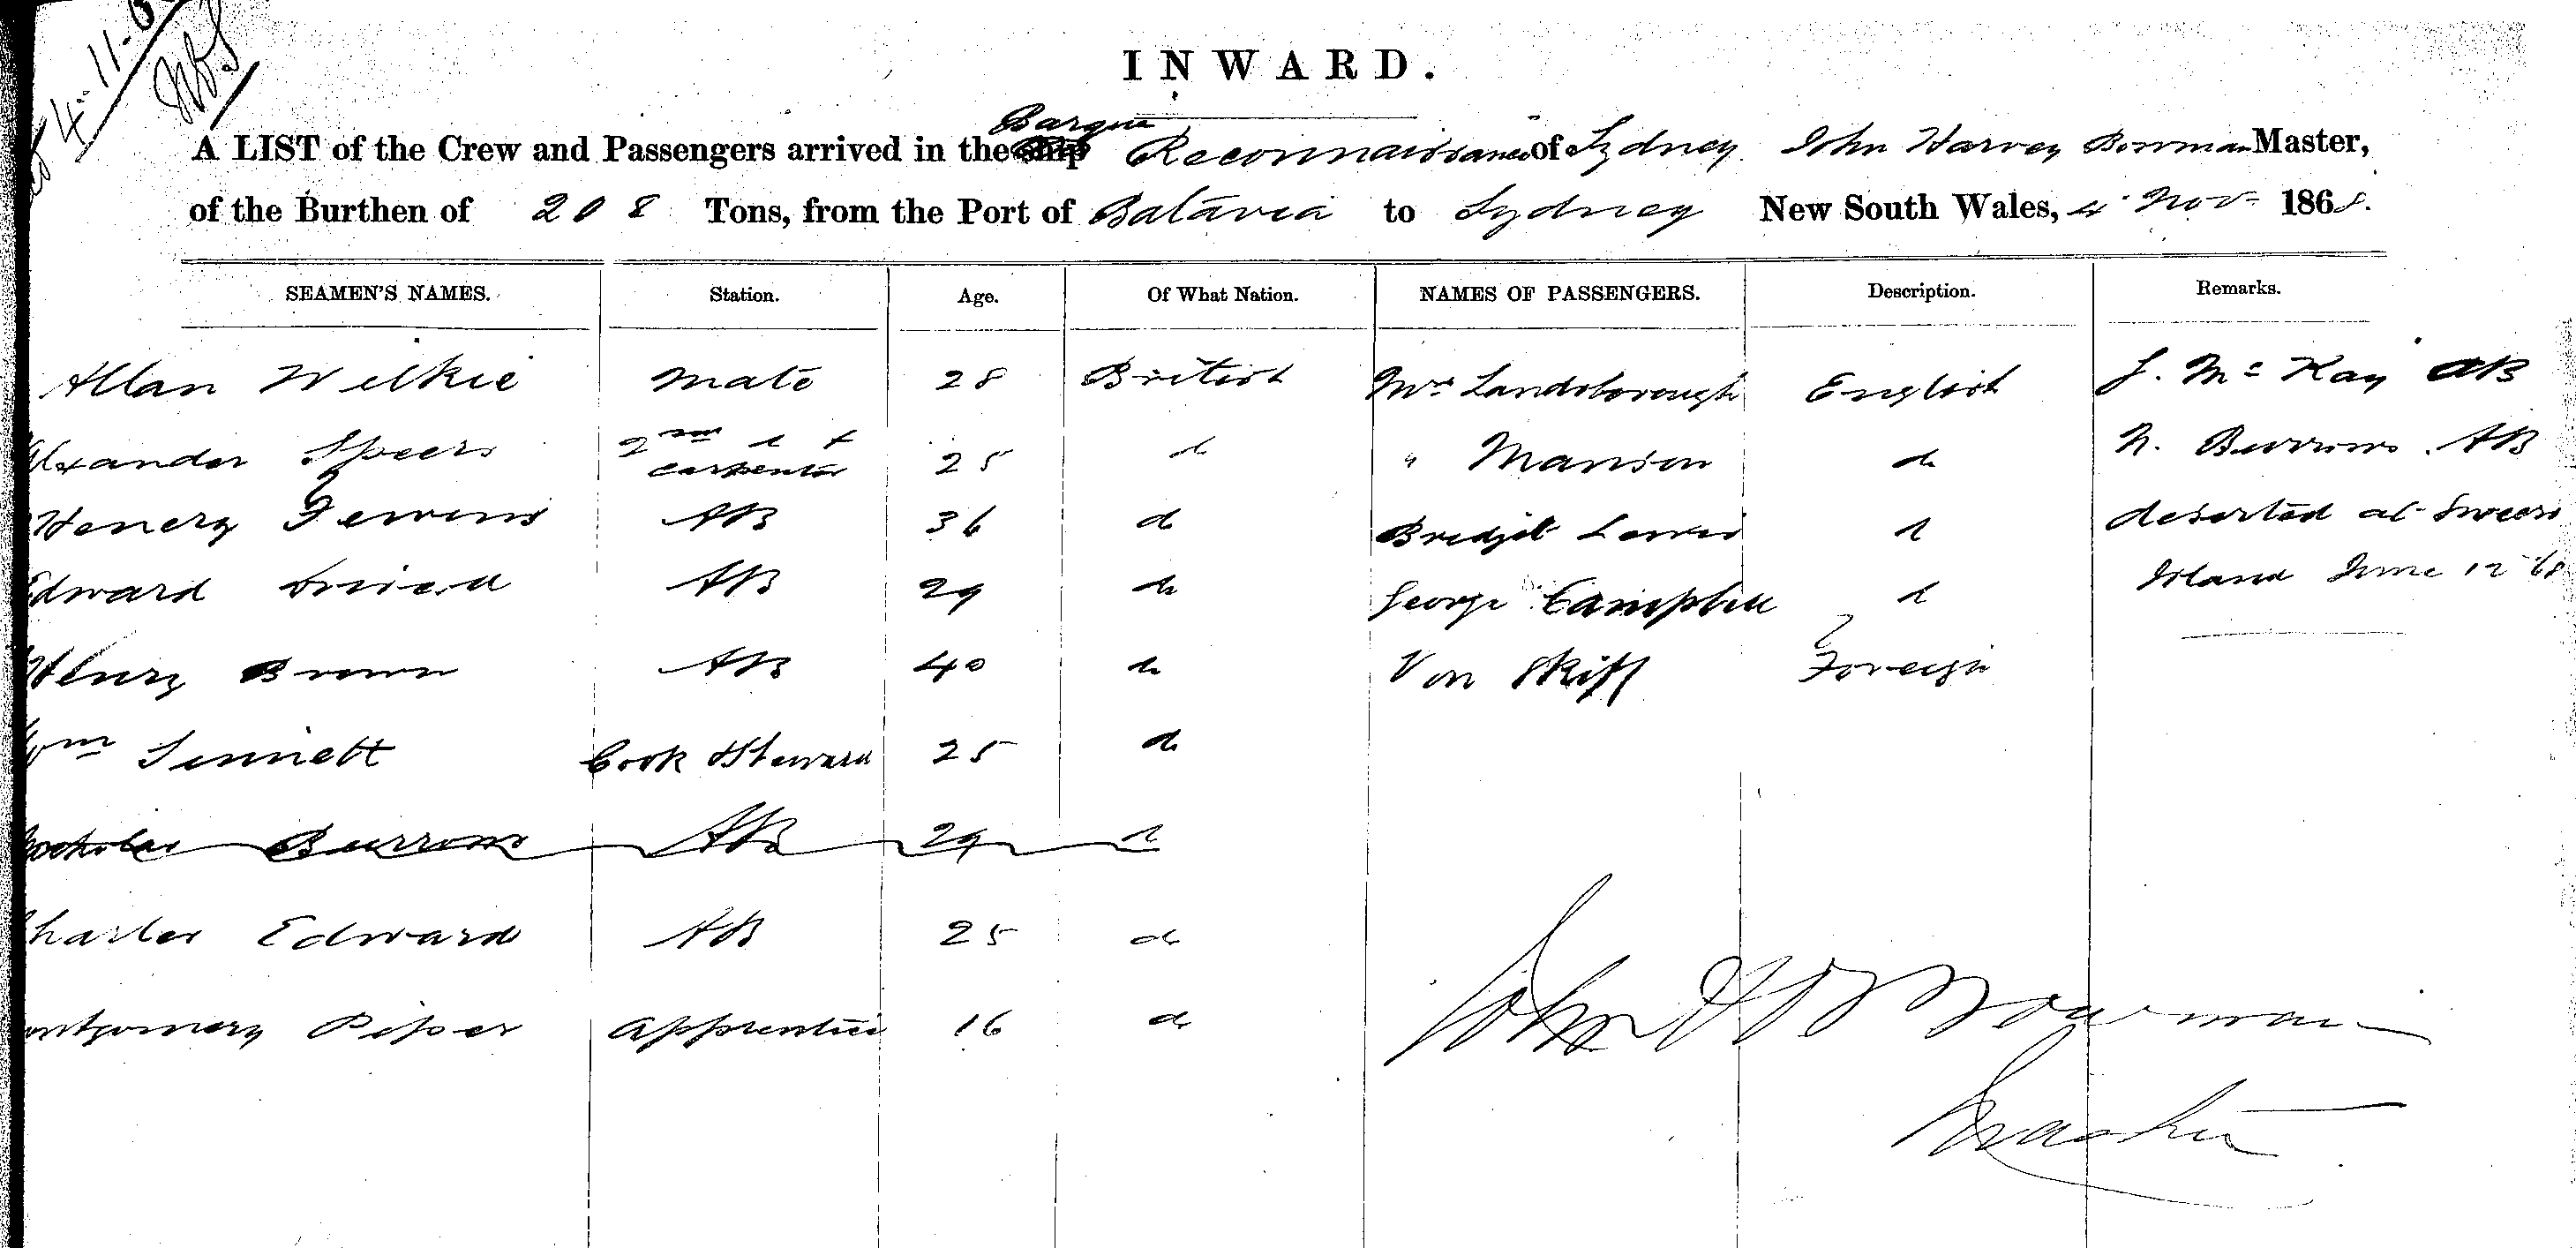 4-11-6
INWARD.
Barque
A LIST of the Crew and Passengers arrived in the Ship Reconnaissance of Sydney John Harvey Bowman Master,
of the Burthen of 208 Tons, from the Port of Batavia to Sydney New South Wales, 4 Nov. 1868.
SEAMEN'S NAMES. Station. Age. Of What Nation. NAMES OF PASSENGERS. Description. Remarks.
Allan Wilkie Mate 28 British Mrs Landsborough English J. McKay AB
lexander Speers 2nd & carpenter 25 do " Manson do N. Burrows AB
Henery AB 36 do Bredjet Lewis do deserted at Sweers
Edward AB 29 do George Campbell do Island June 12 68
Henry Brown AB 40 do Von Skiff Foreign
Wm Sennett Cook & Steward 25 do
Nocholas Burrows AB 29 do
harles Edward AB 25 do
ontgomery Piper Apprentice 16 do
John H Bowman
Master